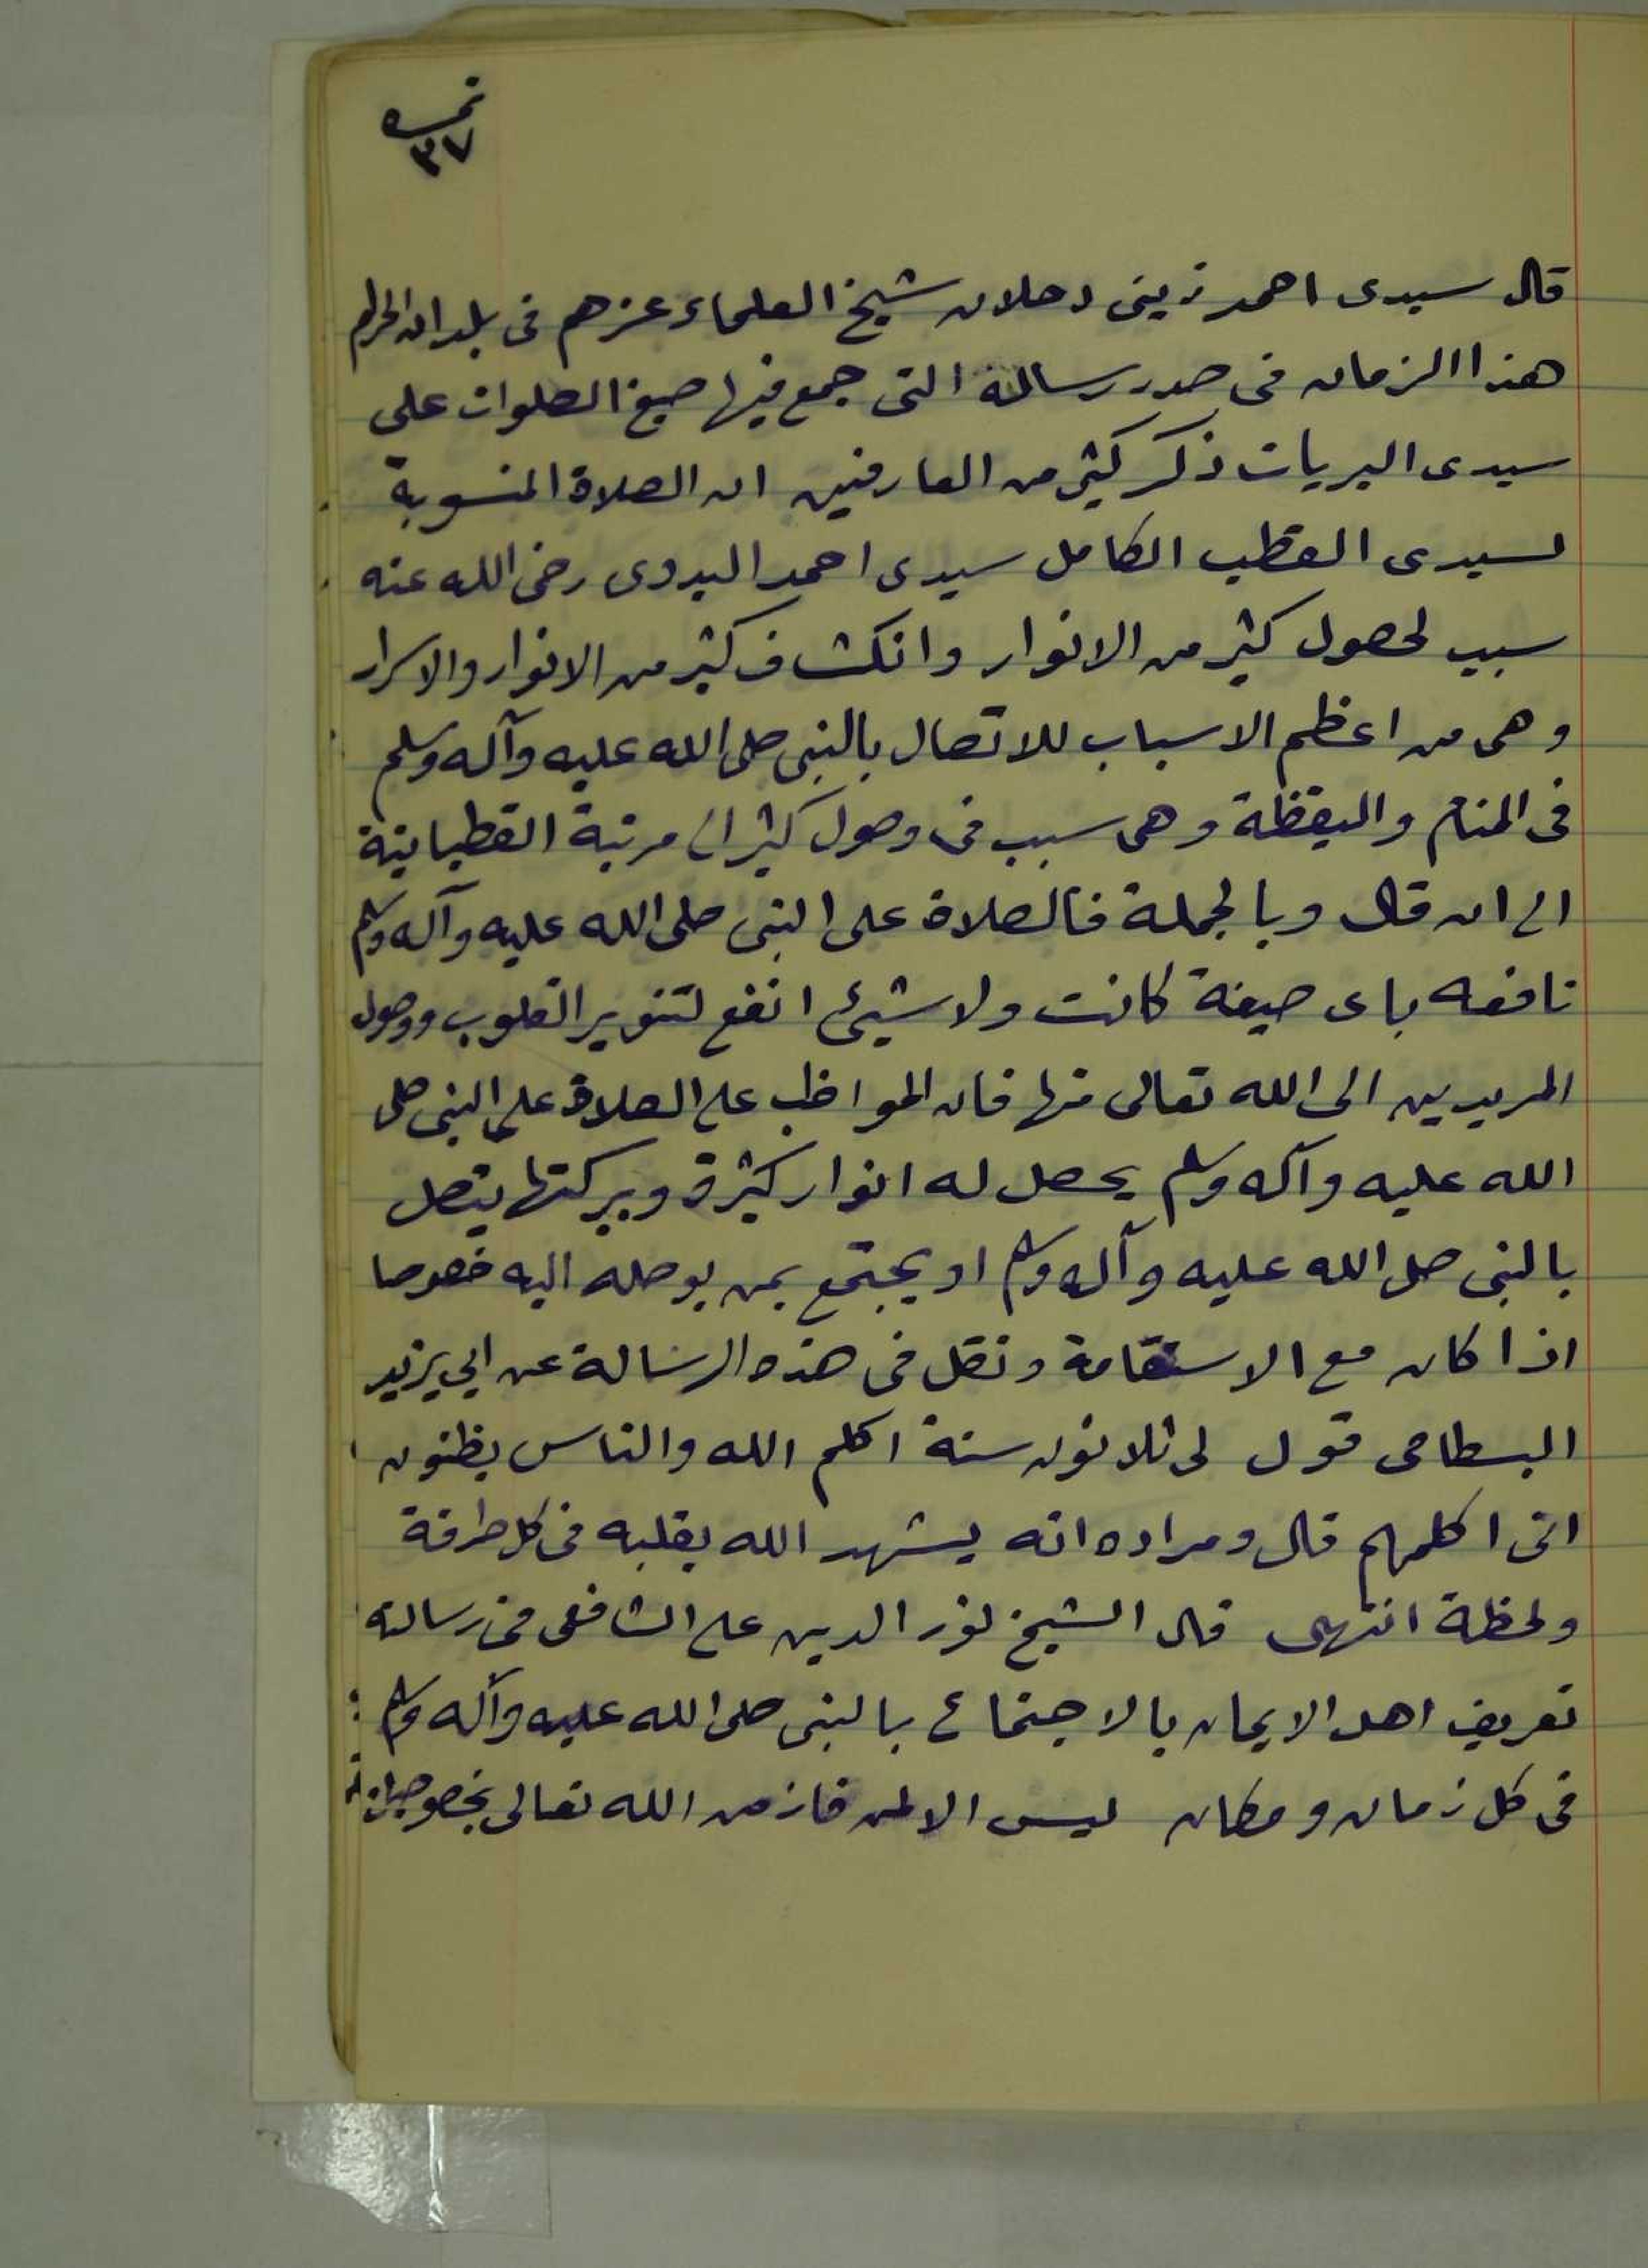 نمره
٣٧
قال سيدى احمد زينى دحلان شيخ العلماء عزهم فى بلد الله الحرام
هذا الزمان فى صدر رسالة التى جمع فيها صيغ الصلوات على
سيدى البريات ذكر كثير من العارفين ان الصلاة المنسوبة
لسيدى القطب الكامل سيدى احمد البدوى رضى الله عنه
سبب لحصول كثير من الانوار وانكشاف كثير من الانوار والاسرار
وهى من اعظم الاسباب للاتصال بالنبى صلى الله عليه وآله وسلم
فى المنام واليقظة وهى سبب فى وصول كثير الى مرتبة القطبانية
الى ان قال وبالجملة فالصلاة على النبى صلى الله عليه وآله وسلم
نافعه باى صيغة كانت ولا شيئ انفع لتنوير القلوب ووصول
المريدين الى الله تعالى منها فان المواظب على الصلاة على النبى صلى
الله عليه وآله وسلم يحصل له انوار كثيرة وببركتها يتصل
بالنبى صلى الله عليه وآله وسلم او يجتمع بمن يوصله اليه خصوصا
اذا كان مع الاستقامة ونقل فى هذه الرسالة عن ابي يزيد
البسطامى قول لى ثلاثون سنة اكلم الله والناس يظنون
انى اكلمهم قال ومراده انه يشهد الله بقلبه فى كل طرفة
ولحظة انتهى قال الشيخ نور الدين على الشافعى فى رسالته
تعريف اهل الايمان بالاجتماع بالنبى صلى الله عليه وآله وسلم
فى كل زمان ومكان ليس الا لمن فاز من الله تعالى